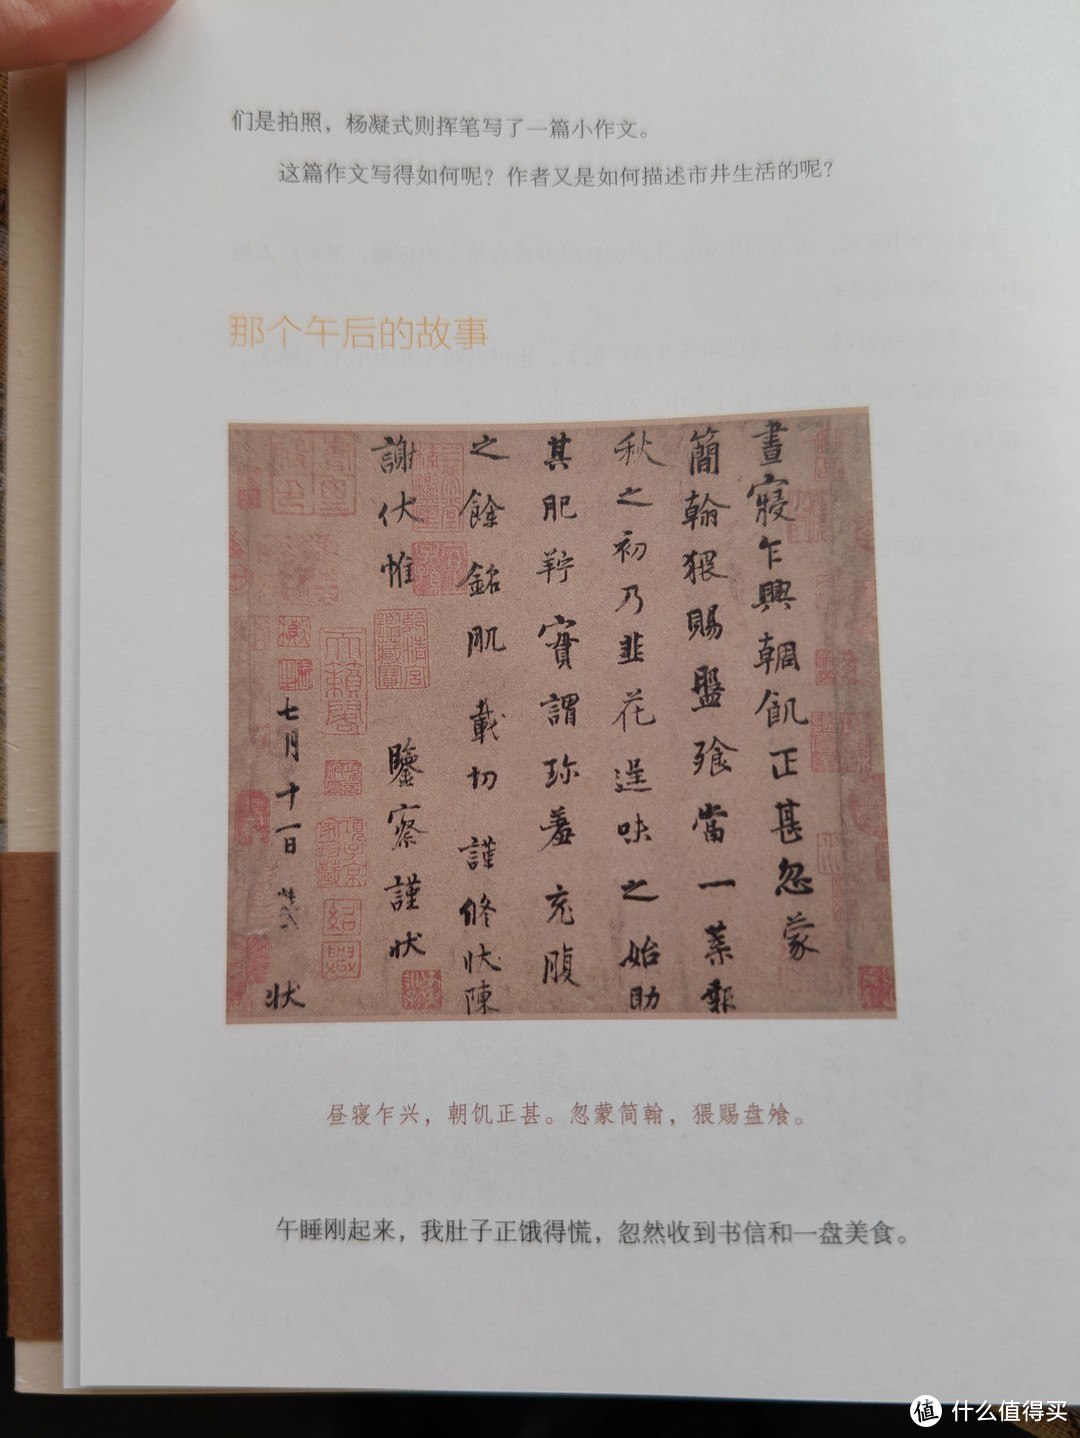 们是拍照，杨凝式则挥笔写了一篇小作文。
这篇作文写得如何呢？作者又是如何描述市井生活的呢？
那个午后的故事
晝寢乍興輖飢正甚忽蒙
簡翰猥賜盤飧當一葉報
秋之初乃韭花逞味之始助
其肥羜實謂珎羞充腹
之餘銘肌載切謹修狀陳
謝伏惟鑒察謹狀
七月十一日
狀
昼寝乍兴，朝饥正甚。忽蒙简翰，猥赐盘飧。
午睡刚起来，我肚子正饿得慌，忽然收到书信和一盘美食。
值 什么值得买